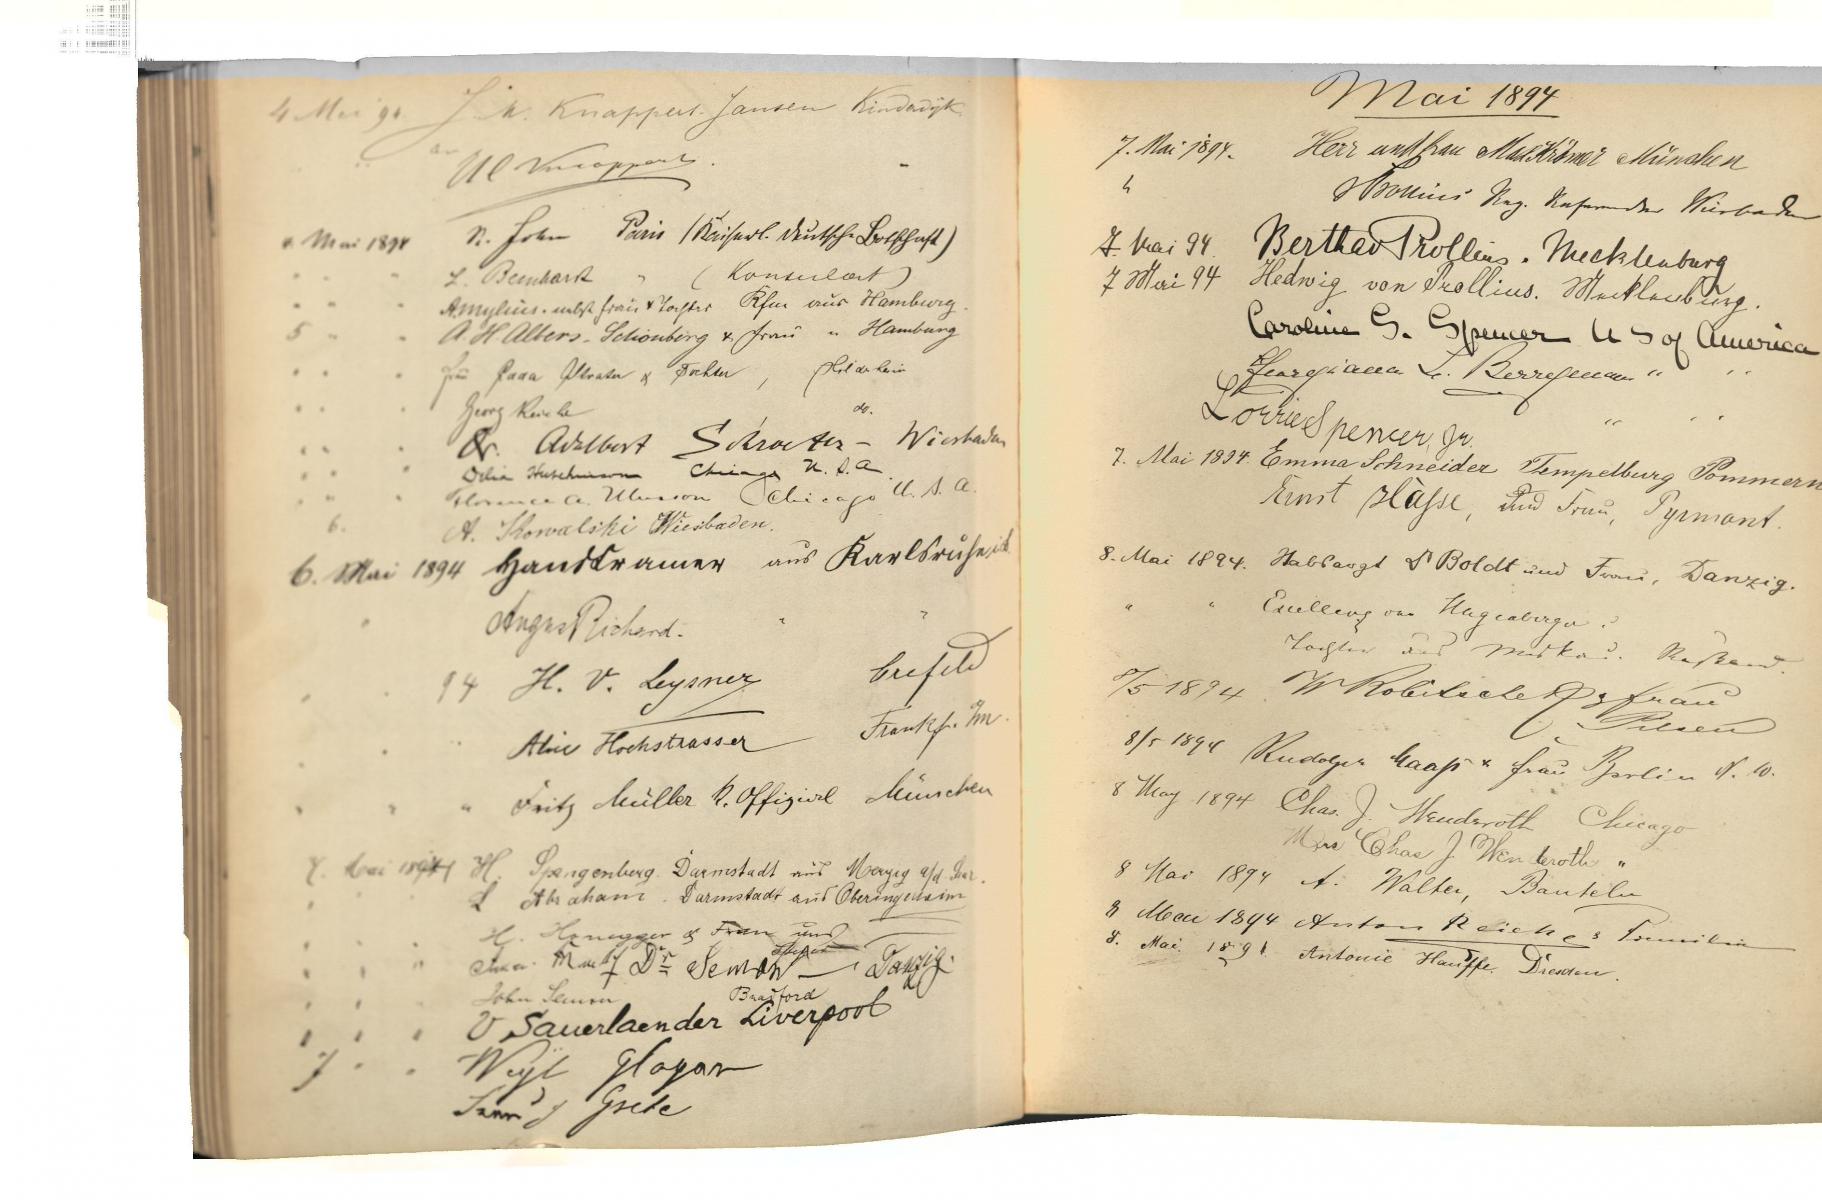 4 Mai 94. J. W. Knappert-Jansen Kinderdijk
Knappert.
4 Mai 1894 R. John Paris (Kaiserl. deutsche Botschaft)
" " " L. Bernhardt " (Konsulat)
" " " A. Mylius nebst Frau & Tochter Kfm aus Hamburg.
5 " " A. H. Albers-Schönberg & Frau " Hamburg
" " " Frau & Tochter, Hildesheim
" " " Georg Reiche do.
" " " Dr. Adalbert Schroeter – Wiesbaden
" " " Delia Hutchinson Chicago U.S.A.
" " " Florence A. Chicago U.S.A.
6. A. Kowalski Wiesbaden.
6. Mai 1894 Hans Kramer aus Karlsruhe
" Richard. " "
" " 94 H. V. Leysner Crefeld
" " Hochstrasser Frankf.
" " " Fritz Müller k. Offizial München
7. Mai 1894 H. Spangenberg. Darmstadt aus Merzig a/d. Saar.
" " L Abraham. Darmstadt aus Oberingelheim
" " " H. Honegger & Frau und
" " " Dr. Semon – Danzig.
" " " John Semon Bradford
" " " V Sauerlaender Liverpool
7 " " Weyl Glogau
Grete
Mai 1894
7. Mai 1894. Herr und Frau Max Krämer München
" Prollius Reg. Referendar Wiesbaden
7. Mai 94 Bertha v Prollius. Mecklenburg
7 Mai 94 Hedwig von Prollius. Mecklenburg.
Caroline G. Spencer U S of America
Georgiana L. Berryman " " "
Lorrie Spencer, Jr. " " "
7. Mai 1894. Emma Schneider Tempelburg Pommern
Ernst Hasse, und Frau, Pyrmont.
8. Mai 1894. Stabsarzt Dr Boldt und Frau, Danzig.
" " Excellenz von
Tochter aus Moskau. Russland.
8/5 1894 W Robitschek & frau
Pilsen
8/5 1894 Rudolf Maass & frau Berlin N. W.
8 May 1894 Chas. J. Wenderoth Chicago
Mrs Chas J Wenderoth "
8 Mai 1894 A. Walter, Banteln
8 Mai 1894 Anton Reiche & Familie
8. Mai. 1894. Antonie Hauffe. Dresden.